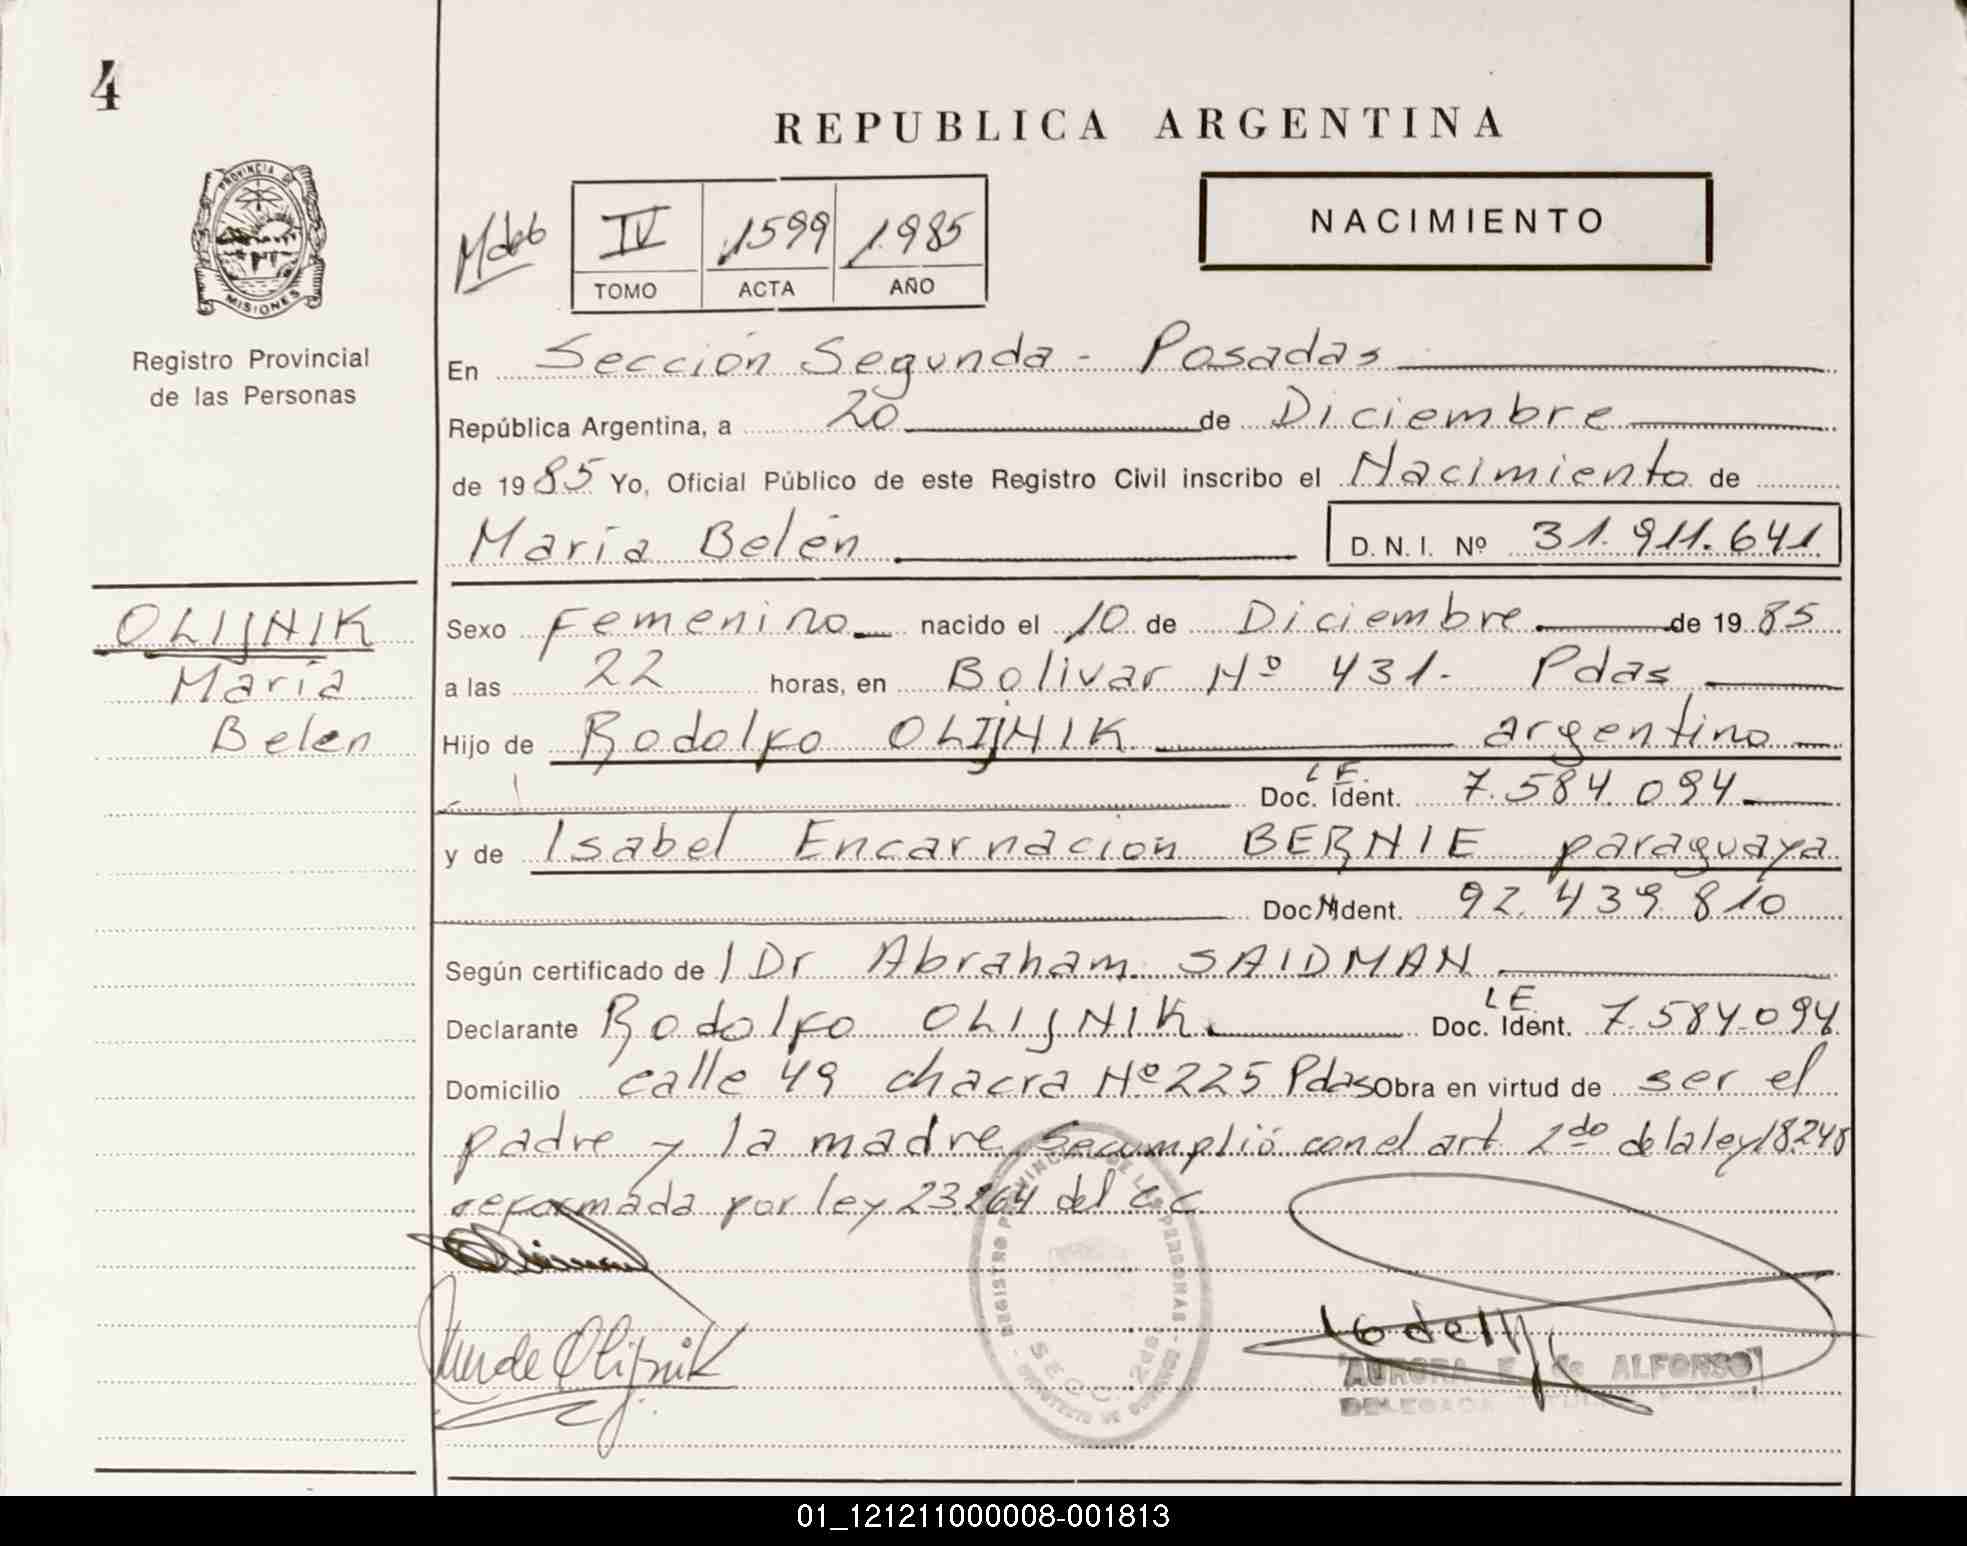 4
REPUBLICA ARGENTINA
PROVINCIA DE
MISIONES
Registro Provincial
de las Personas
IV 1599 1985
TOMO ACTA AÑO
NACIMIENTO
En Sección Segunda - Posadas
República Argentina, a 20 de Diciembre
de 1985 Yo, Oficial Público de este Registro Civil inscribo el Nacimiento de
María Belén D. N. I. Nº 31.911.641
OLIJNIK
María
Belen
Sexo Femenino nacido el 10 de Diciembre de 1985
a las 22 horas, en Bolivar Nº 431- Pdas
Hijo de Rodolfo OLIJNIK argentino
Doc. Ident. L E. 7.584.094
y de Isabel Encarnación BERNIE paraguaya
Doc. Ident. 92.439.810
Según certificado de l Dr Abraham SAIDMAN
Declarante Rodolfo OLIJNIK Doc. Ident. L E 7.584.094
Domicilio calle 49 chacra Nº 225 Pdas Obra en virtud de ser el
padre y la madre Se cumplió con el art 2do de la ley 18.248
reformada por ley 23.264 del C.C
REGISTRO PROVINCIAL DE LAS PERSONAS
SECC. 2da.
de Olijnik
AURORA E. de ALFONSO
01_121211000008-001813